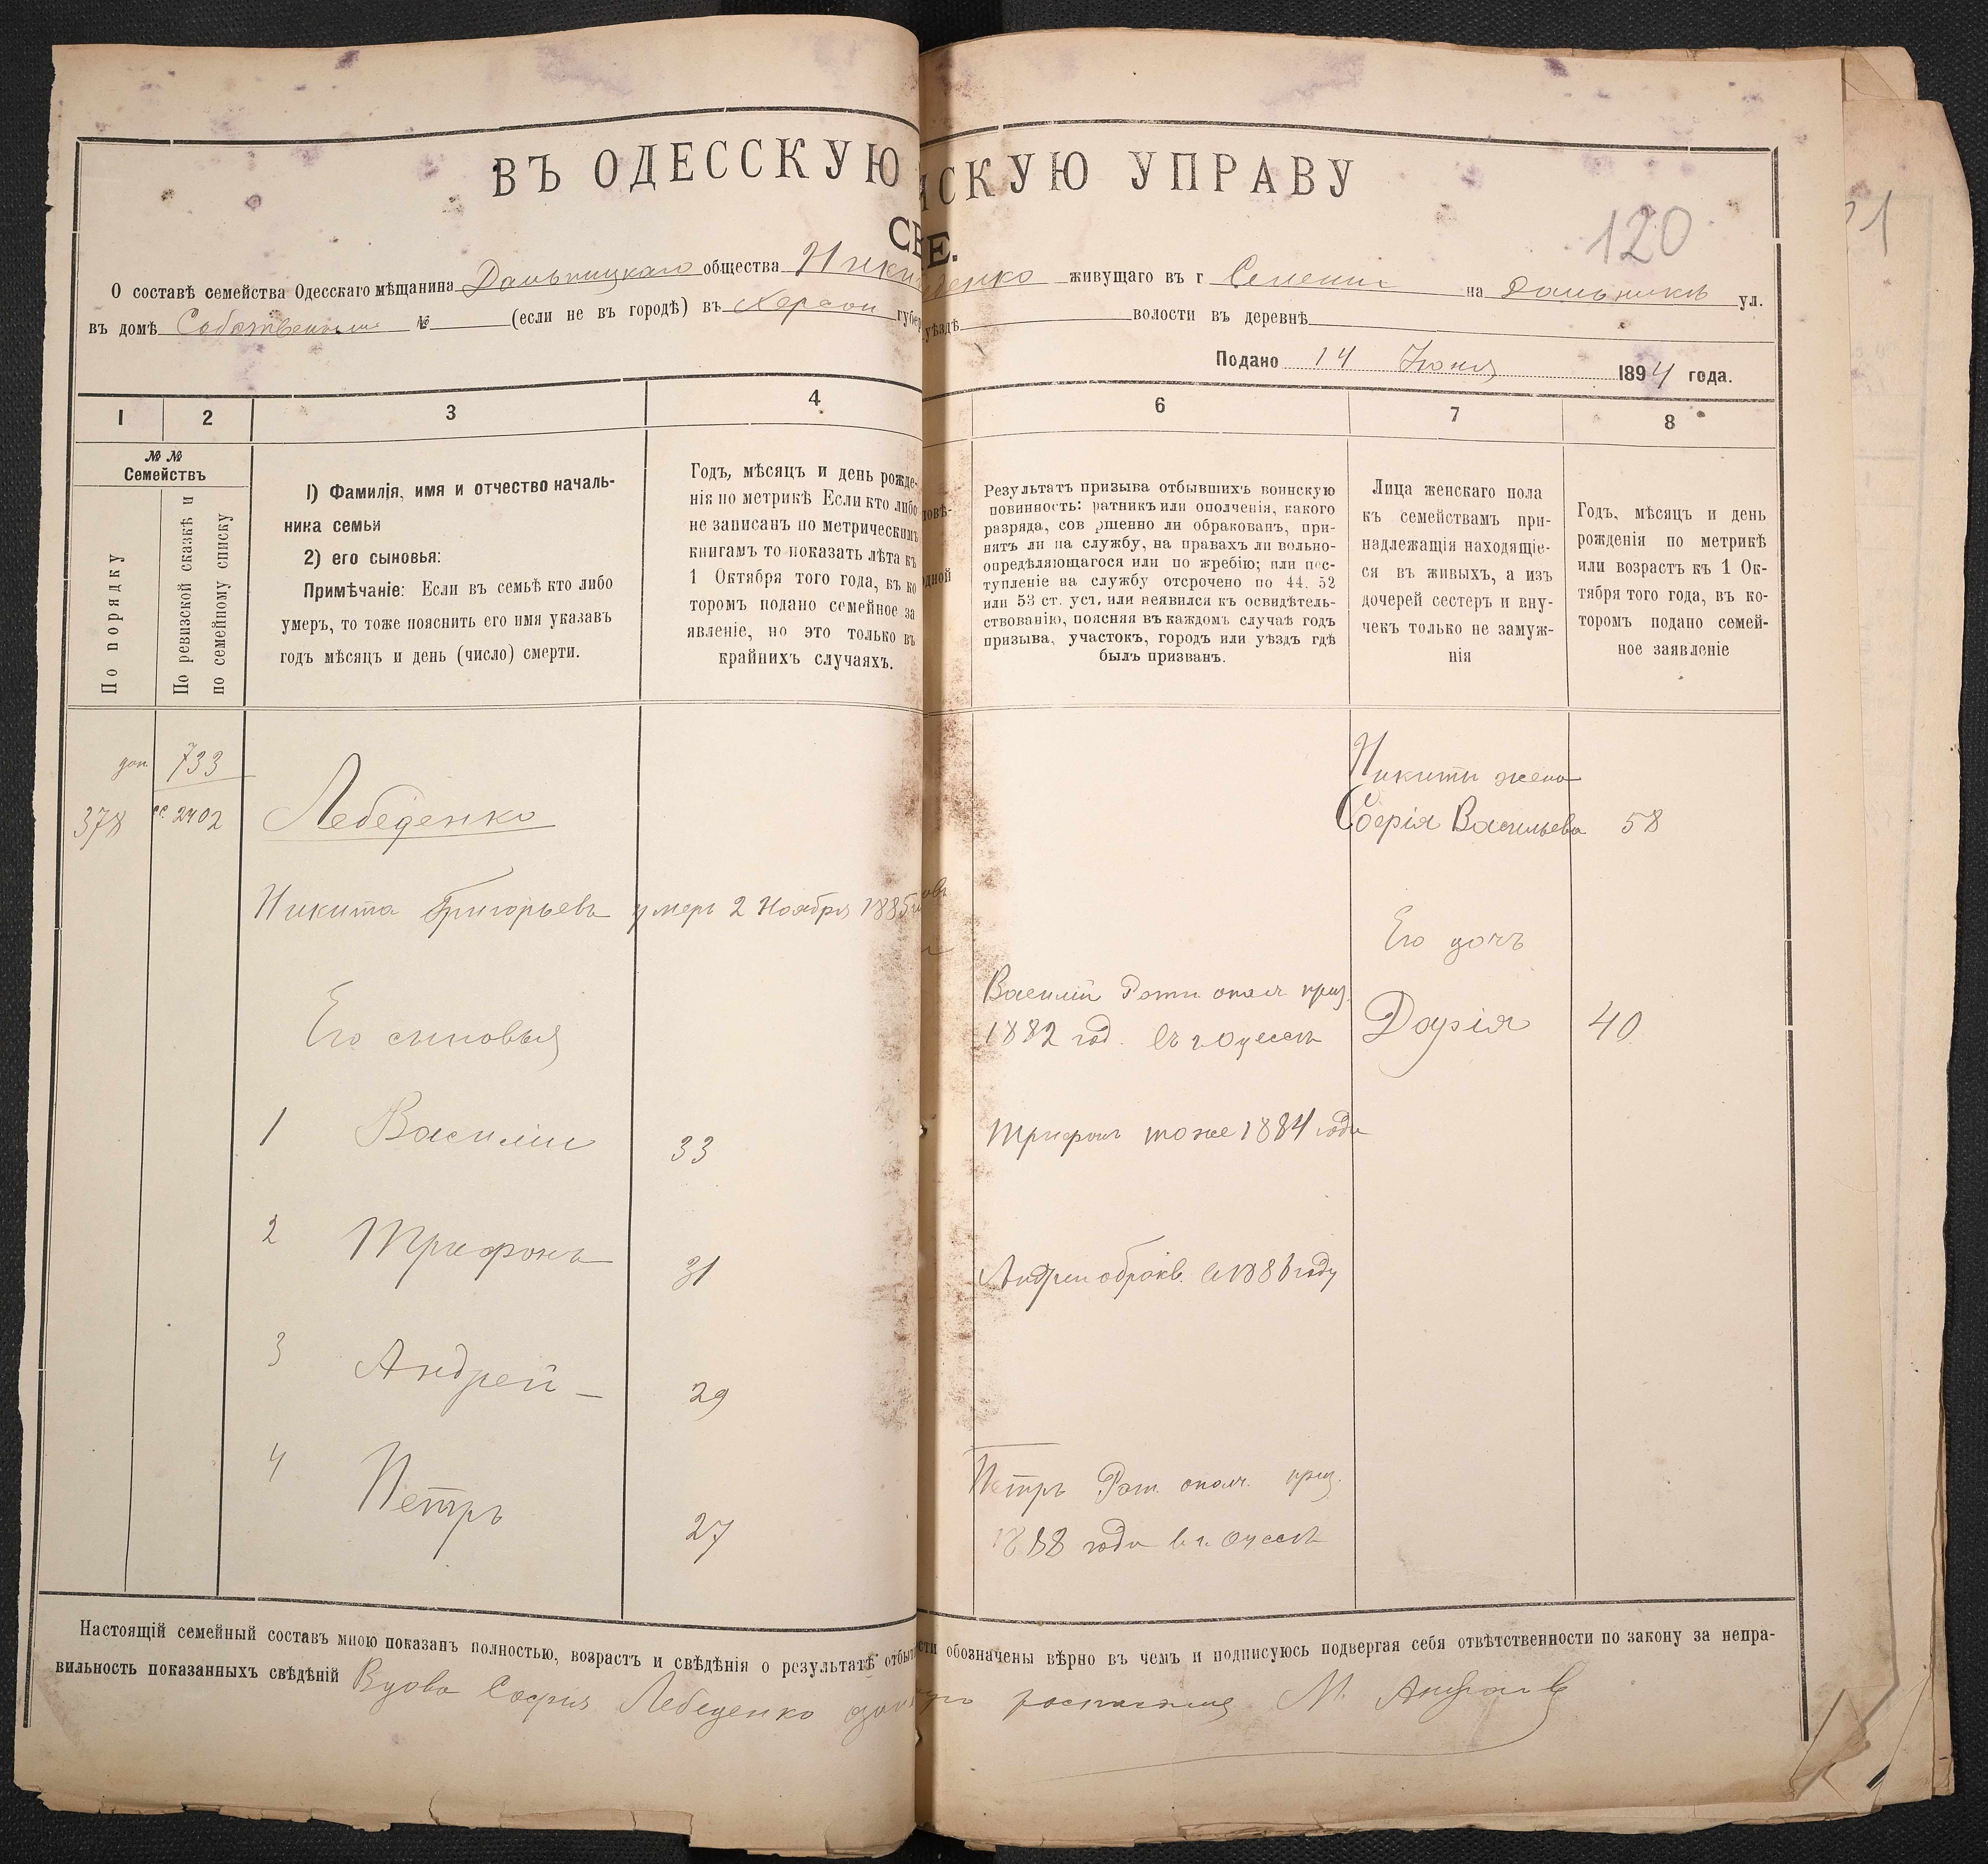 ВЪ ОДЕССКУЮ
СКУЮ УПРАВУ
120
О составѣ семейства Одесскаго мѣщанина Дальницкаго общества
живущаго въ г Селеніи на Дальникѣ ул.
въ домѣ Собственномъ № (если не въ городѣ) въ Херсон губер
уѣздѣ волости въ деревнѣ
Подано 14 Іюня 1894 года.
1 2 3 4
6 7 8
№ № Семействъ
По порядку
По ревизской сказкѣ и
по семейному списку
1) Фамилія, имя и отчество началь-
ника семьи
2) его сыновья:
Примѣчаніе: Если въ семьѣ кто либо
умеръ, то тоже пояснить его имя указавъ
годъ мѣсяцъ и день (число) смерти.
Годъ, мѣсяцъ и день рожде-
нія по метрикѣ Если кто либо
не записанъ по метрическимъ
книгамъ то показать лѣта къ
1 Октября того года, въ ко
торомъ подано семейное за
явленіе, но это только въ
крайнихъ случаяхъ.
Результатъ призыва отбывшихъ воинскую
повинность: ратникъ или ополченія, какого
разряда, сов ршенно ли обракованъ, при-
нятъ ли на службу, на правахъ ли вольно-
опредѣляющагося или по жребію; или пос-
тупленіе на службу отсрочено по 44. 52
или 53 ст. уст, или неявился къ освидѣтель-
ствованію, поясняя въ каждомъ случаѣ годъ
призыва, участокъ, городъ или уѣздъ гдѣ
былъ призванъ.
Лица женскаго пола
къ семействамъ при-
надлежащія находящіе-
ся въ живыхъ, а изъ
дочерей сестеръ и вну-
чекъ только не замуж-
нія
Годъ, мѣсяцъ и день
рожденія по метрикѣ
или возрастъ къ 1 Ок-
тября того года, въ ко-
торомъ подано семей-
ное заявленіе
доп 733
378 2402 Лебеденко
Никита Григорьевъ умеръ 2 Ноября 1885
Его сыновья
1 Василій 33
2 Трифонъ 31
3 Андрей 29
4 Петръ 27
Василій Ратн. ополч приз.
1882 год. въ г Одессѣ
Трифонъ тоже 1884 года
Андрей обраков. въ 1886 году
Петръ Рат. ополч. приз.
1888 года в г. Одессѣ
Никиты жена
Софія Васильева 58
Его дочь
Дарія 40
Настоящій семейный составъ мною показанъ полностью, возрастъ и свѣдѣнія о результатѣ отбы
сти обозначены вѣрно въ чемъ и подписуюсь подвергая себя отвѣтственности по закону за непра-
вильность показанныхъ свѣдѣній Вдова Софія Лебеденко